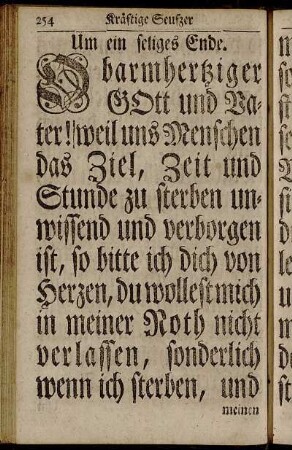 254 Kräftige Seufzer
Um ein seliges Ende.
O barmhertziger
GOtt und Va-
ter! weil uns Menschen
das Ziel, Zeit und
Stunde zu sterben un-
wissend und verborgen
ist, so bitte ich dich von
Herzen, du wollest mich
in meiner Noth nicht
verlassen, sonderlich
wenn ich sterben, und
meinen